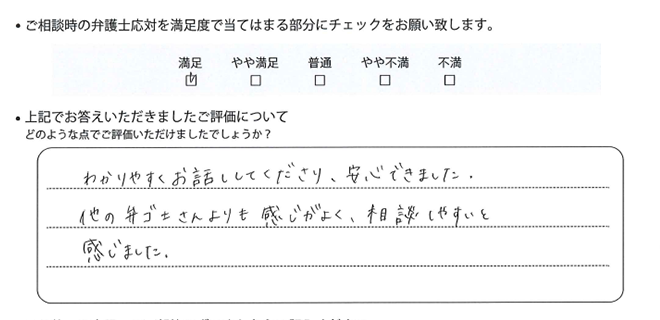 • ご相談時の弁護士応対を満足度で当てはまる部分にチェックをお願い致します。
満足 やや満足 普通 やや不満 不満
☑ □ □ □ □
• 上記でお答えいただきましたご評価について
どのような点でご評価いただけましたでしょうか？
わかりやすくお話ししてくださり、安心できました.
他の弁ゴ士さんよりも感じがよく、相談しやすいと
感じました.